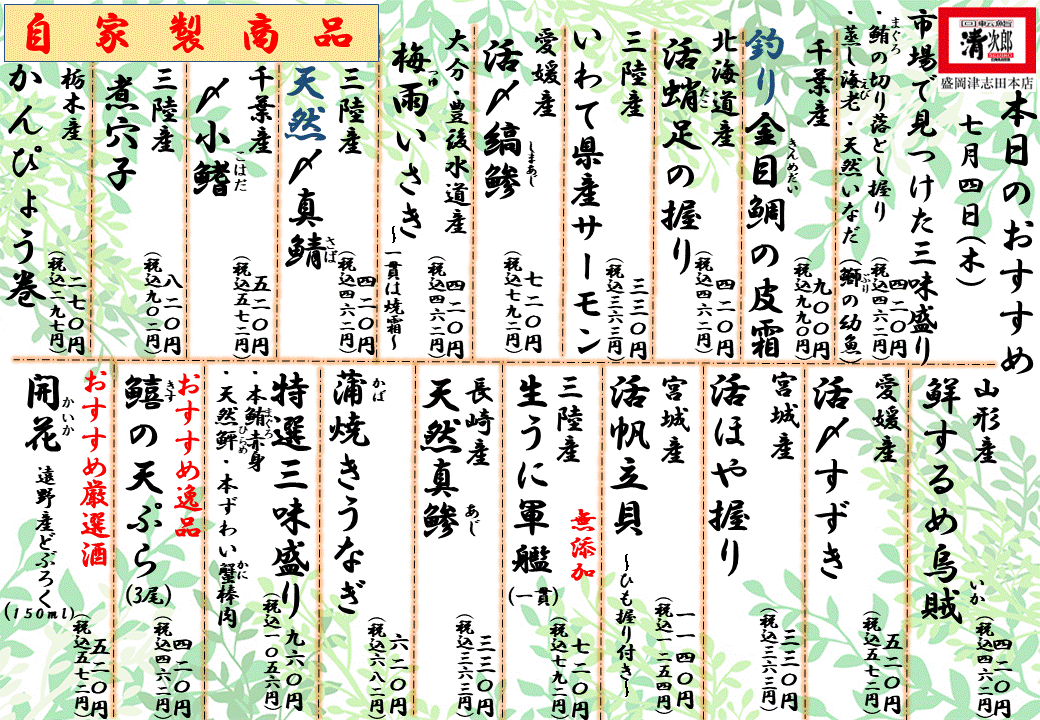 回転鮨
清次郎
盛岡津志田本店
本日のおすすめ
七月四日(木)
市場で見つけた三味盛り
・鮪の切り落とし握り
まぐろ
・蒸し海老・天然いなだ(鰤の幼魚)
えび
ぶり
四二〇円
(税込四六二円)
千葉産
釣り金目鯛の皮霜
きんめだい
九〇〇円
(税込九九〇円)
北海道産
活蛸足の握り
たこ
四二〇円
(税込四六二円)
三陸産
いわて県産サーモン
三三〇円
(税込三六三円)
愛媛産
活〆縞鯵
しまあじ
七二〇円
(税込七九二円)
大分・豊後水道産
梅雨いさき
つゆ
~一貫は焼霜~
四二〇円
(税込四六二円)
自家製商品
三陸産
天然〆真鯖
さば
四二〇円
(税込四六二円)
千葉産
〆小鰭
こはだ
五二〇円
(税込五七二円)
三陸産
煮穴子
八二〇円
(税込九〇二円)
栃木産
かんぴょう巻
二七〇円
(税込二九七円)
山形産
鮮するめ烏賊
いか
四二〇円
(税込四六二円)
愛媛産
活〆すずき
五二〇円
(税込五七二円)
宮城産
活ほや握り
三三〇円
(税込三六三円)
宮城産
活帆立貝
~ひも握り付き~
一一四〇円
(税込一二五四円)
三陸産
無添加
生うに軍艦
(一貫)
七二〇円
(税込七九二円)
長崎産
天然真鯵
あじ
三三〇円
(税込三六三円)
蒲焼きうなぎ
かば
六二〇円
(税込六八二円)
特選三味盛り
・本鮪赤身
まぐろ
・天然鮃・本ずわい蟹棒肉
ひらめ
かに
九六〇円
(税込一〇五六円)
おすすめ逸品
鱚の天ぷら
きす
(3尾)
四二〇円
(税込四六二円)
おすすめ厳選酒
開花
かいか
遠野産どぶろく
(150ml)
五二〇円
(税込五七二円)